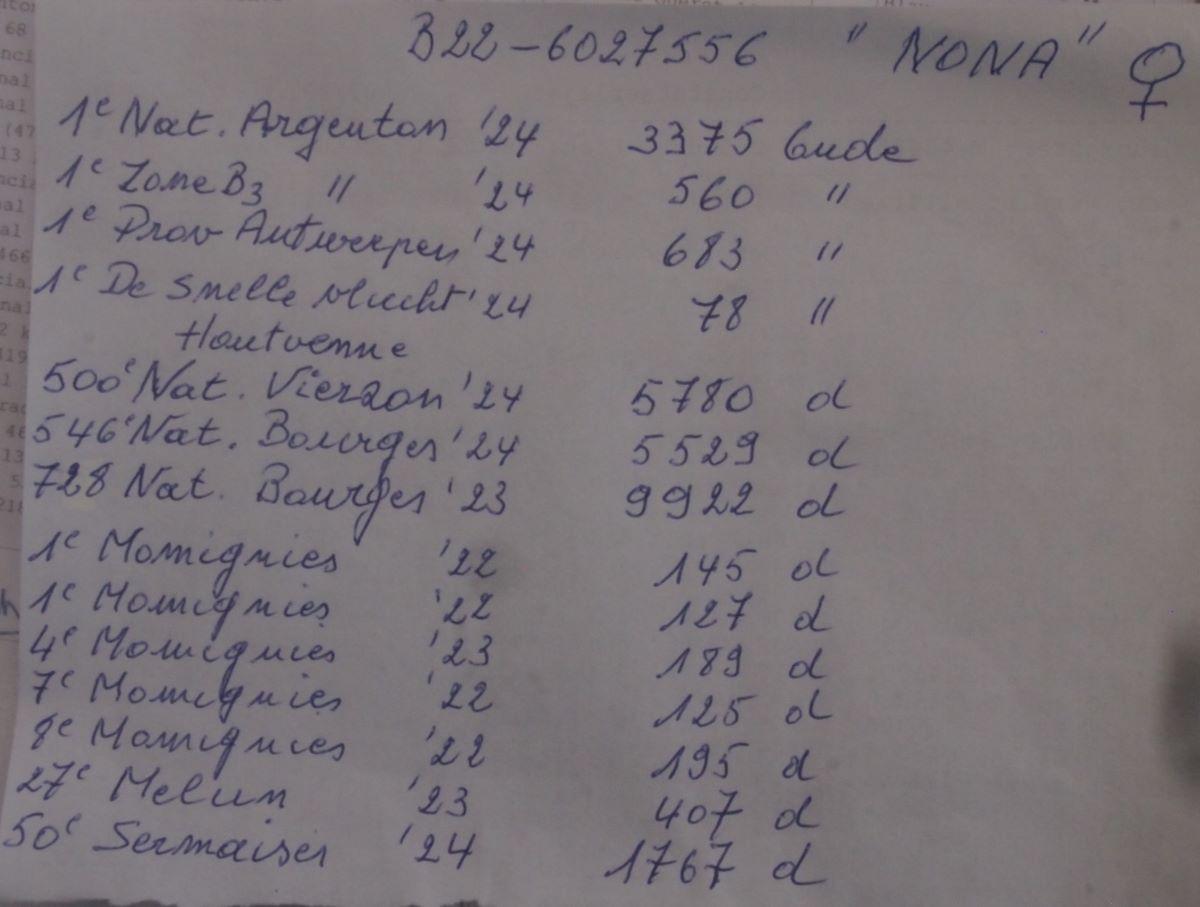 B22-6027556 " NONA " ♀
1e Nat. Argenton '24 3375 Oude
1e Zone B3 " '24 560 "
1e Prov Antwerpen '24 683 "
1e De Snelle vlucht '24 78 "
Houtvenne
500e Nat. Vierzon '24 5780 d
546e Nat. Bourges '24 5529 d
728 Nat. Bourges '23 9922 d
1e Momignies '22 145 d
1e Momignies '22 127 d
4e Momignies '23 189 d
7e Momignies '22 125 d
8e Momignies '22 195 d
27e Melun '23 407 d
50e Sermaises '24 1767 d